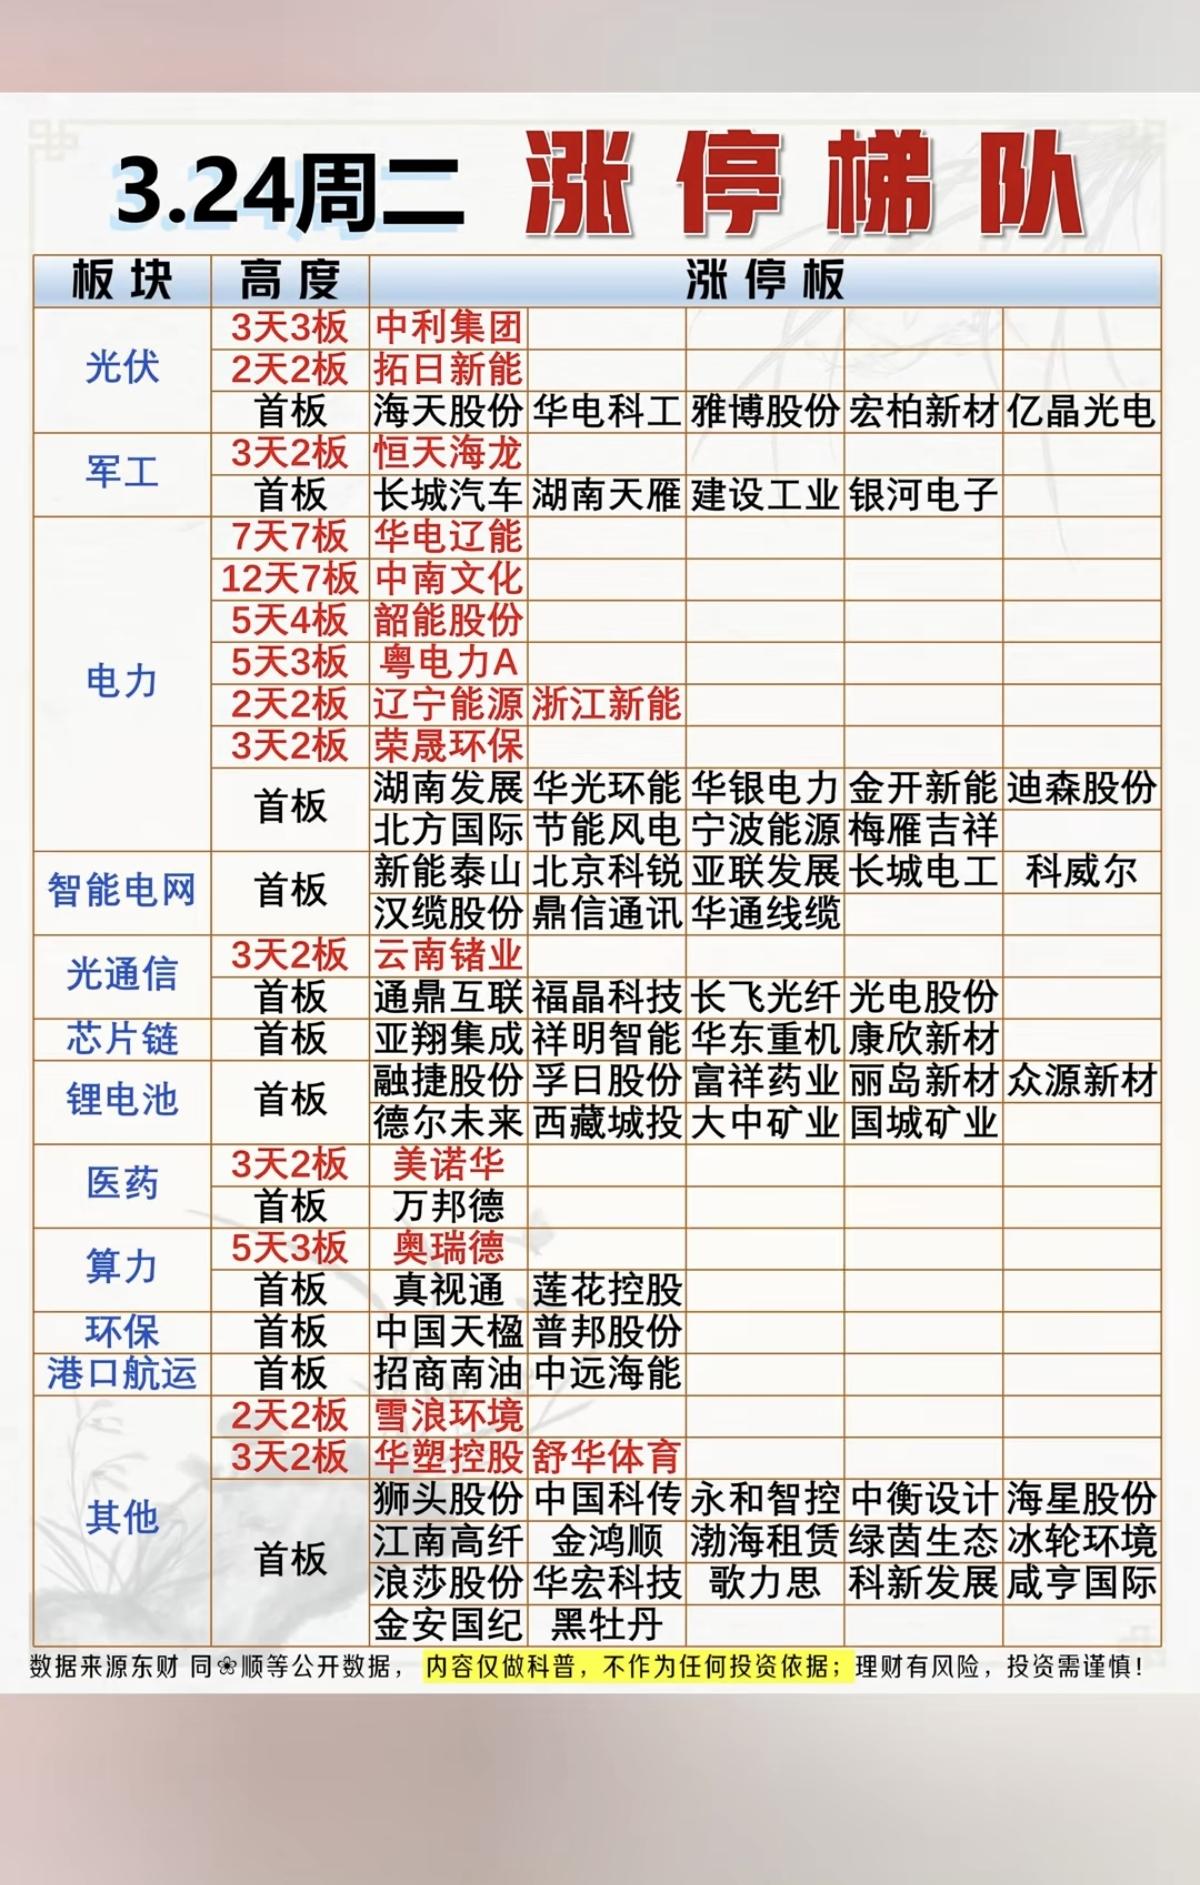 3.24周二 涨停梯队
板块 高度 涨停板
光伏 3天3板 中利集团
2天2板 拓日新能
首板 海天股份 华电科工 雅博股份 宏柏新材 亿晶光电
军工 3天2板 恒天海龙
首板 长城汽车 湖南天雁 建设工业 银河电子
电力 7天7板 华电辽能
12天7板 中南文化
5天4板 韶能股份
5天3板 粤电力A
2天2板 辽宁能源 浙江新能
3天2板 荣晟环保
首板 湖南发展 华光环能 华银电力 金开新能 迪森股份
北方国际 节能风电 宁波能源 梅雁吉祥
智能电网 首板 新能泰山 北京科锐 亚联发展 长城电工 科威尔
汉缆股份 鼎信通讯 华通线缆
光通信 3天2板 云南锗业
首板 通鼎互联 福晶科技 长飞光纤 光电股份
芯片链 首板 亚翔集成 祥明智能 华东重机 康欣新材
锂电池 首板 融捷股份 孚日股份 富祥药业 丽岛新材 众源新材
德尔未来 西藏城投 大中矿业 国城矿业
医药 3天2板 美诺华
首板 万邦德
算力 5天3板 奥瑞德
首板 真视通 莲花控股
环保 首板 中国天楹 普邦股份
港口航运 首板 招商南油 中远海能
其他 2天2板 雪浪环境
3天2板 华塑控股 舒华体育
首板 狮头股份 中国科传 永和智控 中衡设计 海星股份
江南高纤 金鸿顺 渤海租赁 绿茵生态 冰轮环境
浪莎股份 华宏科技 歌力思 科新发展 咸亨国际
金安国纪 黑牡丹
数据来源东财 同❀顺等公开数据，内容仅做科普，不作为任何投资依据；理财有风险，投资需谨慎！